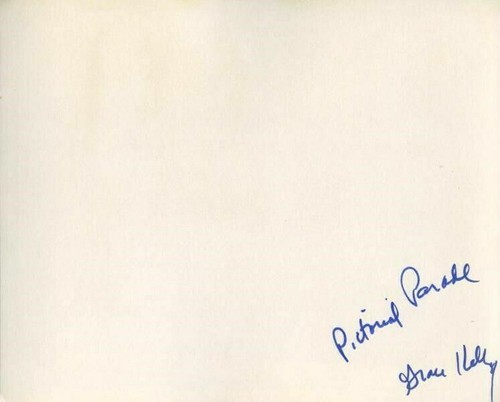 Pictorial Parade
Grace Kelly